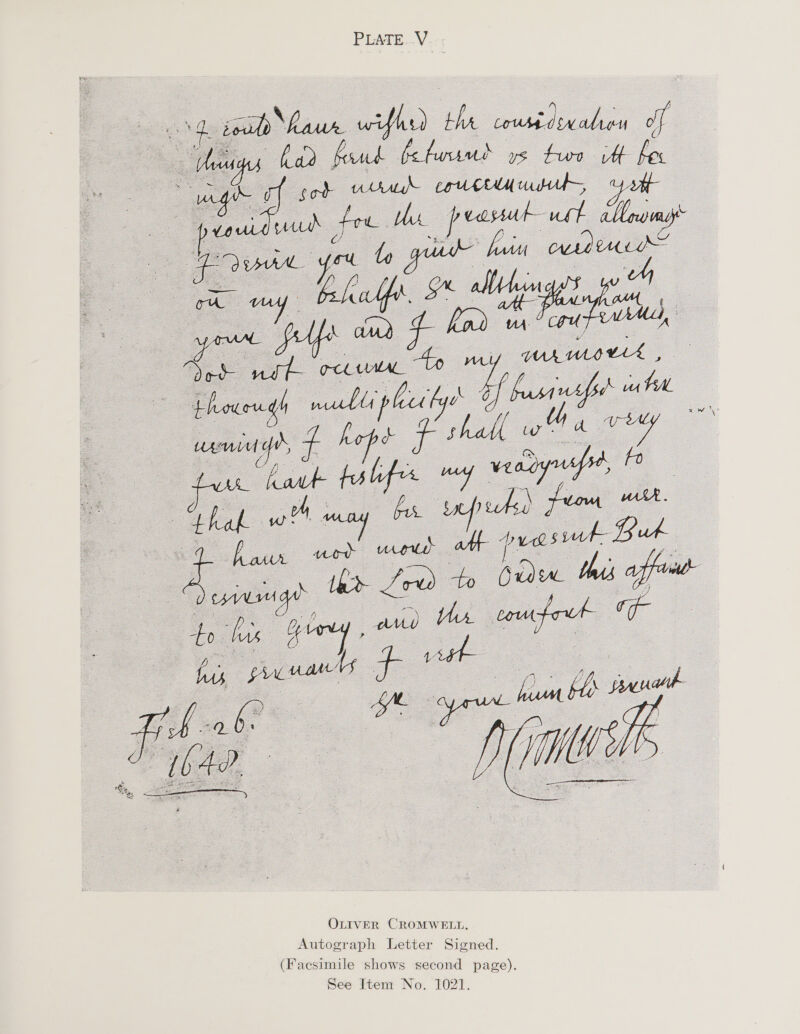 PLATE V
I could haue wished the consideration of
thinges had beene betweene vs two itt be
inge of soe neere concernment, yett
prouidence for the præsent not allowinge
I desire you to giue him credence
on my behalfe. Sr allthinges wch
your selfe and I had in conference,
att Farnham
doe not occurr to my memorie,
thorough multiplicitye of businesse inter
ueninge, I hope I shall wth a very
free hart testifie my readynesse, to
that wch may bee expected from mee.
I haue noe more att præsent. But
desiringe the Lord to Order this affaire
to his Glory, and the comfort of
his seruants I rest
Sr your humble seruant
Feb. 26.
O Cromwell
1648.
OLIVER CROMWELL.
Autograph Letter Signed.
(Facsimile shows second page).
See Item No. 1021.